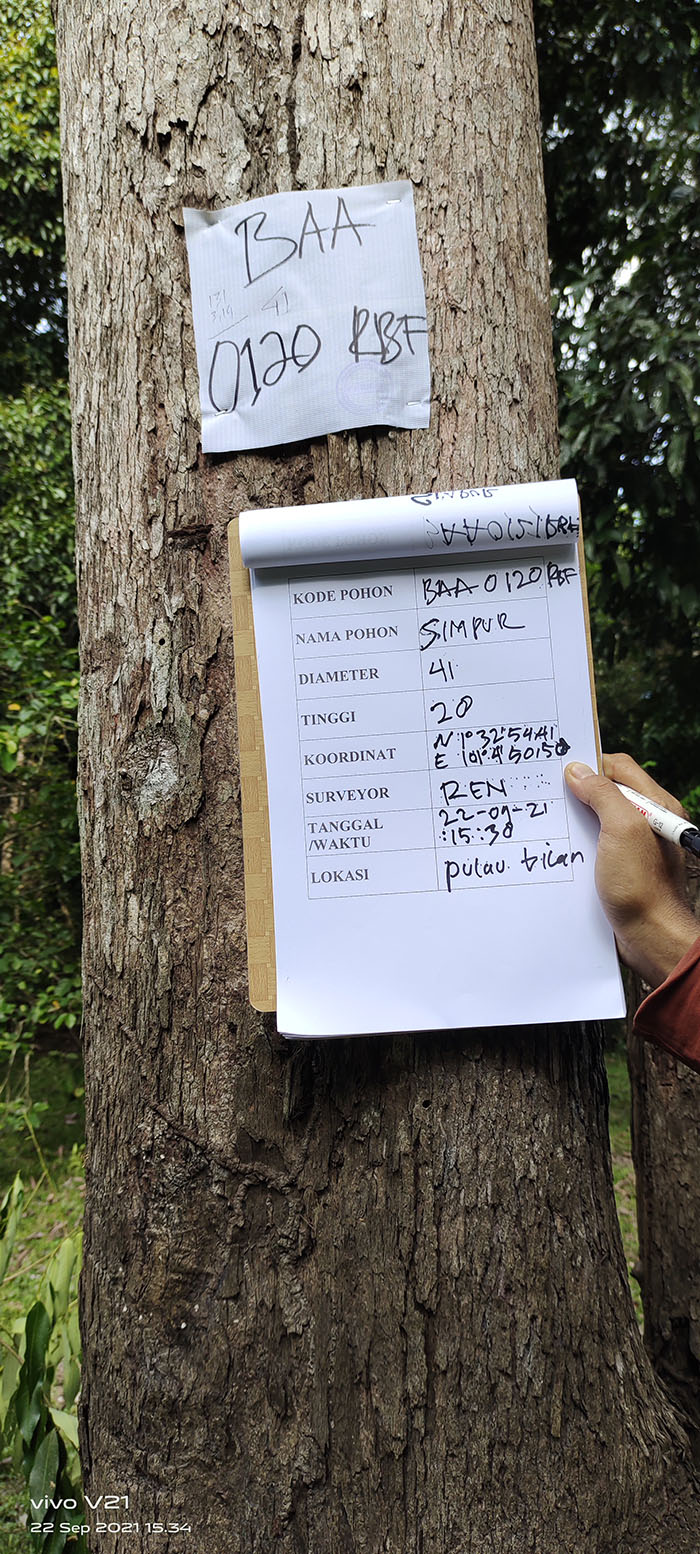 BAA
131
3.14
41
0120 RBF
KODE POHON BAA 0120 RBF
NAMA POHON SIMPUR
DIAMETER 41
TINGGI 20
KOORDINAT N 1°32'54.41
E 101°4'50.50
SURVEYOR REN
TANGGAL 22-09-21
/WAKTU :15:30
LOKASI pulau bican
vivo V21
22 Sep 2021 15.34